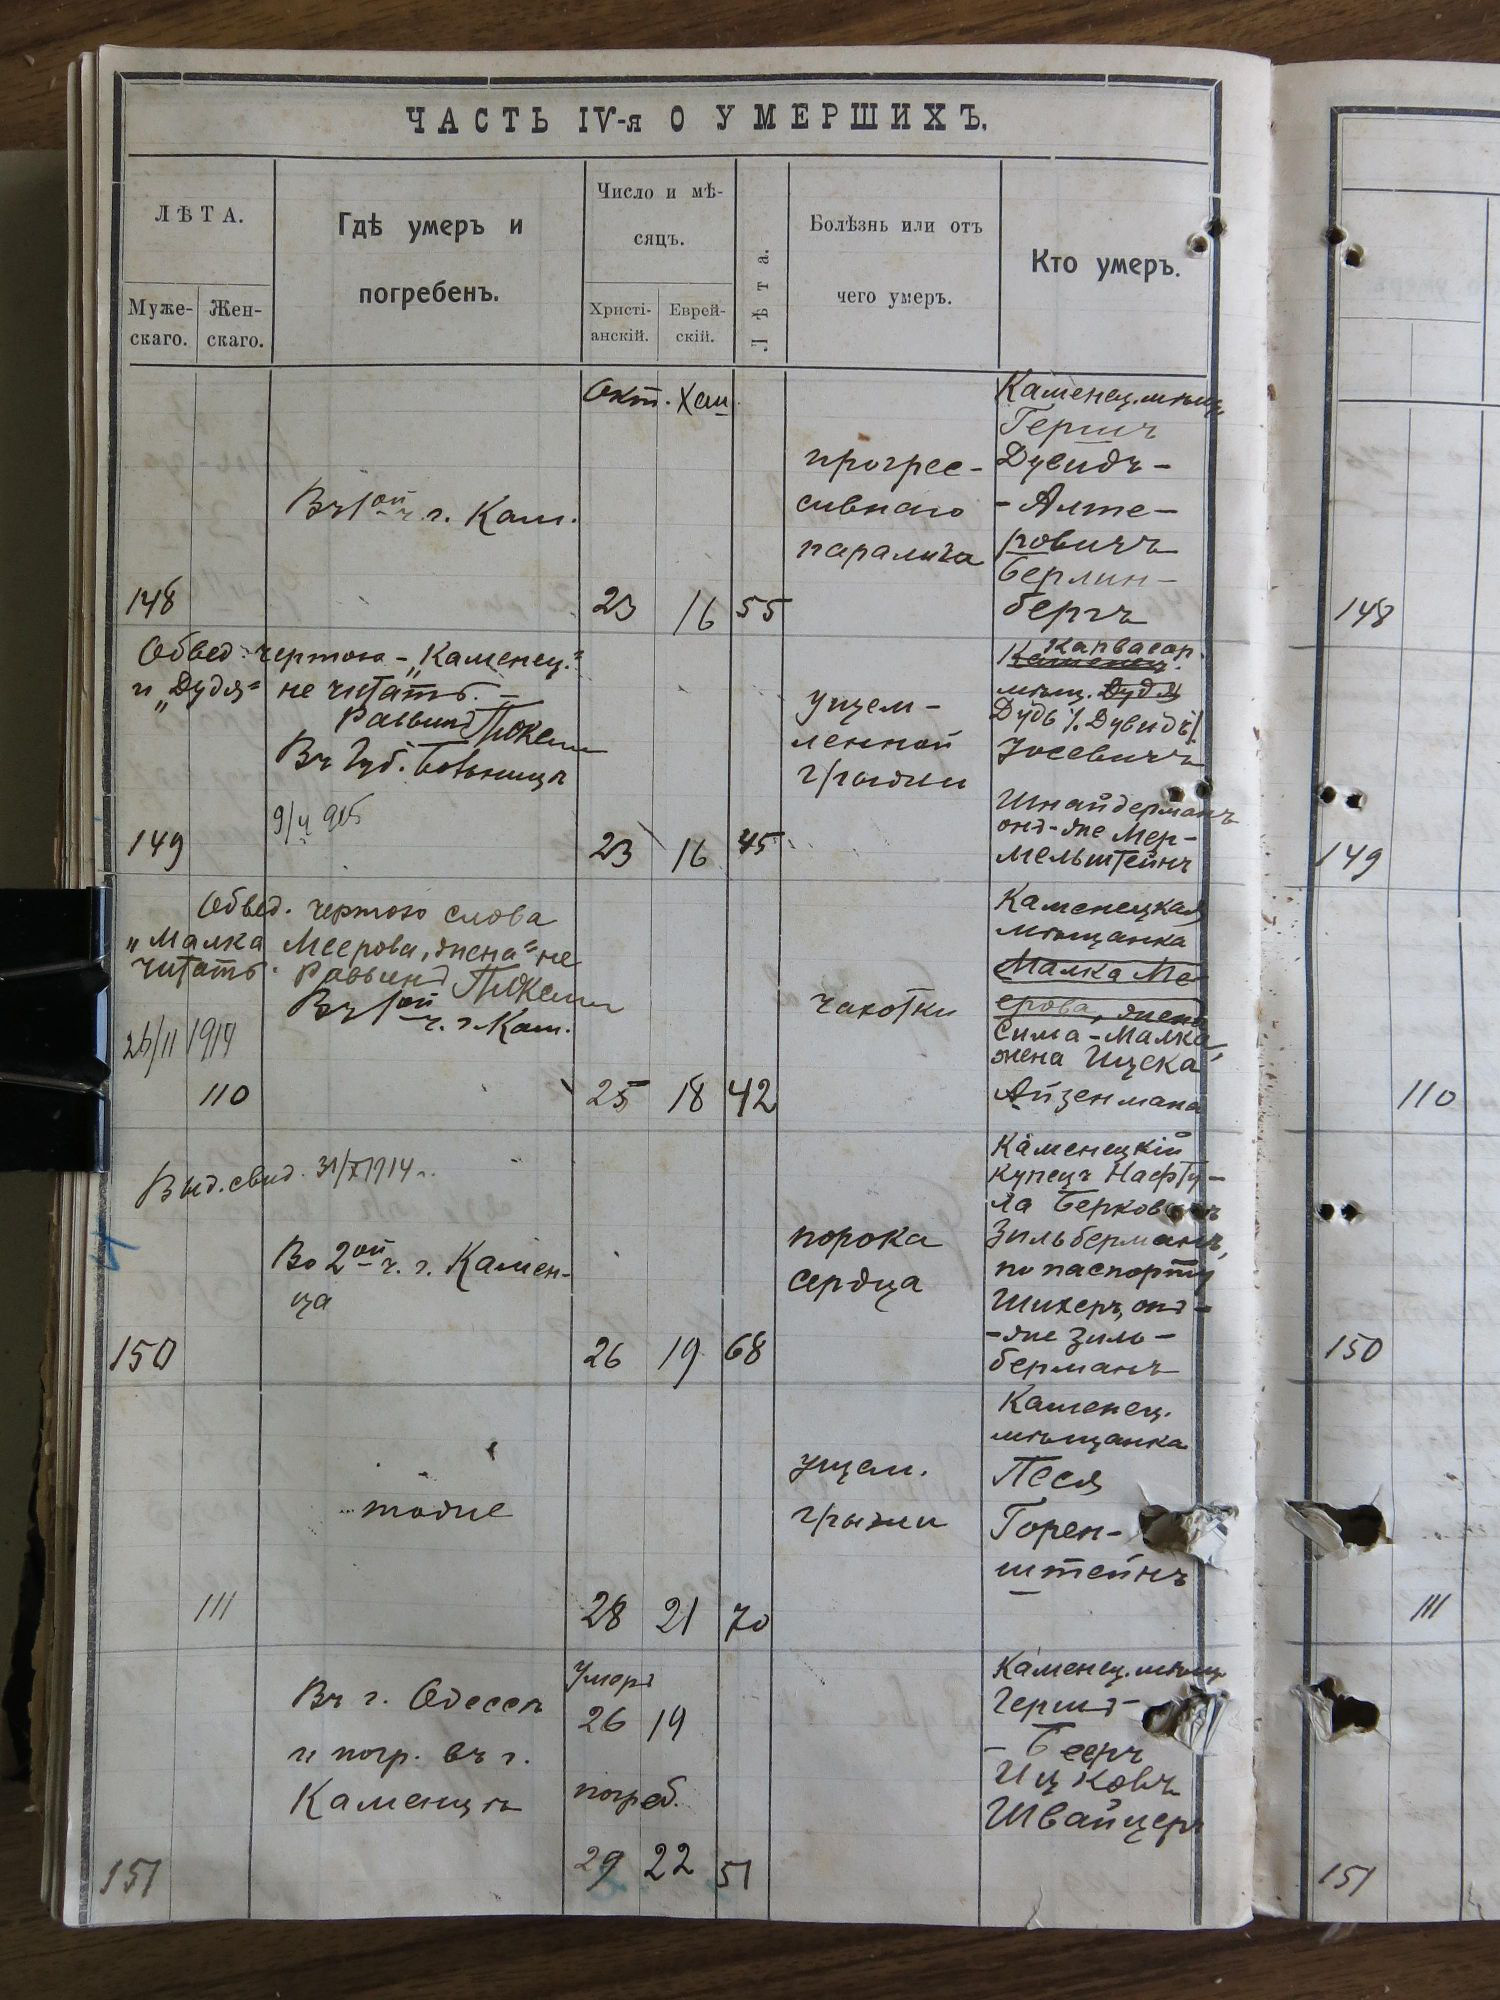 ЧАСТЬ IV-я О УМЕРШИХЪ.
ЛѢТА.
Муже-
скаго.
Жен-
скаго.
Гдѣ умеръ и
погребенъ.
Число и мѣ-
сяцъ.
Христі-
анскій.
Еврей-
скій.
Лѣта.
Болѣзнь или отъ
чего умеръ.
Кто умеръ.
Окт. Хеш.
148
Въ 1ой ч. г. Кам.
23 16 55
прогрес-
сивнаго
паралича
Каменец. мѣщ.
Гершъ
Дувидъ-
-Алте-
ровичъ
Берлин-
бергъ
148
Обвед. чертою - „Каменец.“
и „Дудя“ не читать. -
Раввинъ
Въ Губ. Больницѣ
149
23 16 45
ущем-
ленной
грыжи
Карвасар.
Каменец.
мѣщ. Дудя
Дудь /:Дувидъ:/
Іосевичъ
Шнайдерманъ
онъ-же Мер-
мельштейнъ
149
Обвед. чертою слова
„Малка Меерова, жена“ не
читать. Раввинъ
Въ 1ой
ч. г. Кам.
26/II 1914
110
25 18 42
чахотки
Каменецкая
мѣщанка
Малка Ме-
ерова, жена
Сима-Малка,
жена Ицска
Айзенмана
110
Выд. свид. 31/X 1914 г.
Во 2ой ч. г. Камен-
ца
150
26 19 68
порока
сердца
Каменецкій
купецъ Нафту-
ла Берковичъ
Зильберманъ,
по паспорту
Шихеръ, онъ-
-же Зиль-
берманъ
150
тоже
111
28 21 70
ущем.
грыжи
Каменец.
мѣщанка
Песя
Горен-
штейнъ
111
Въ г. Одессѣ
и погр. въ г.
Каменцѣ
Умеръ
26 19
погреб.
29 22 51
151
Каменец. мѣщ.
Гершъ-
-Бееръ
Ицковъ
Швайцеръ
151